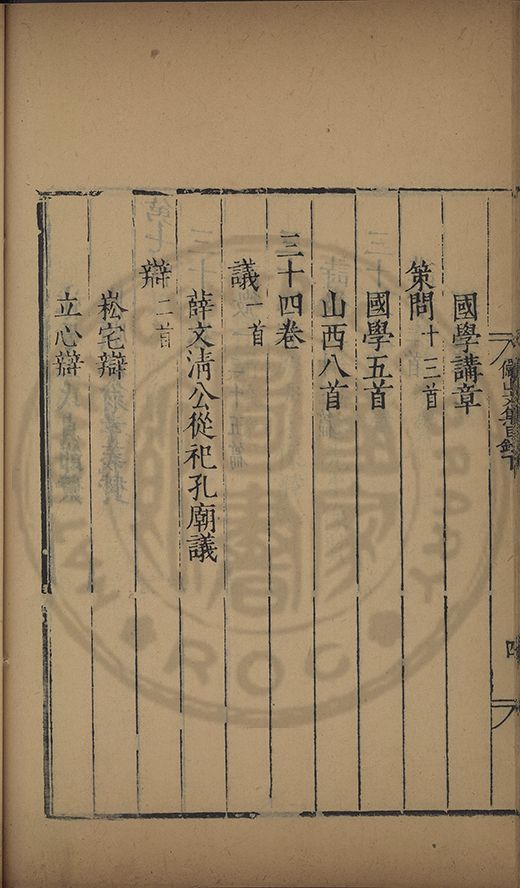 國學講章
策問十三首
國學五首
山西八首
三十四卷
議一首
薛文淸公從祀孔廟議
辯二首
崧宅辯
立心辯